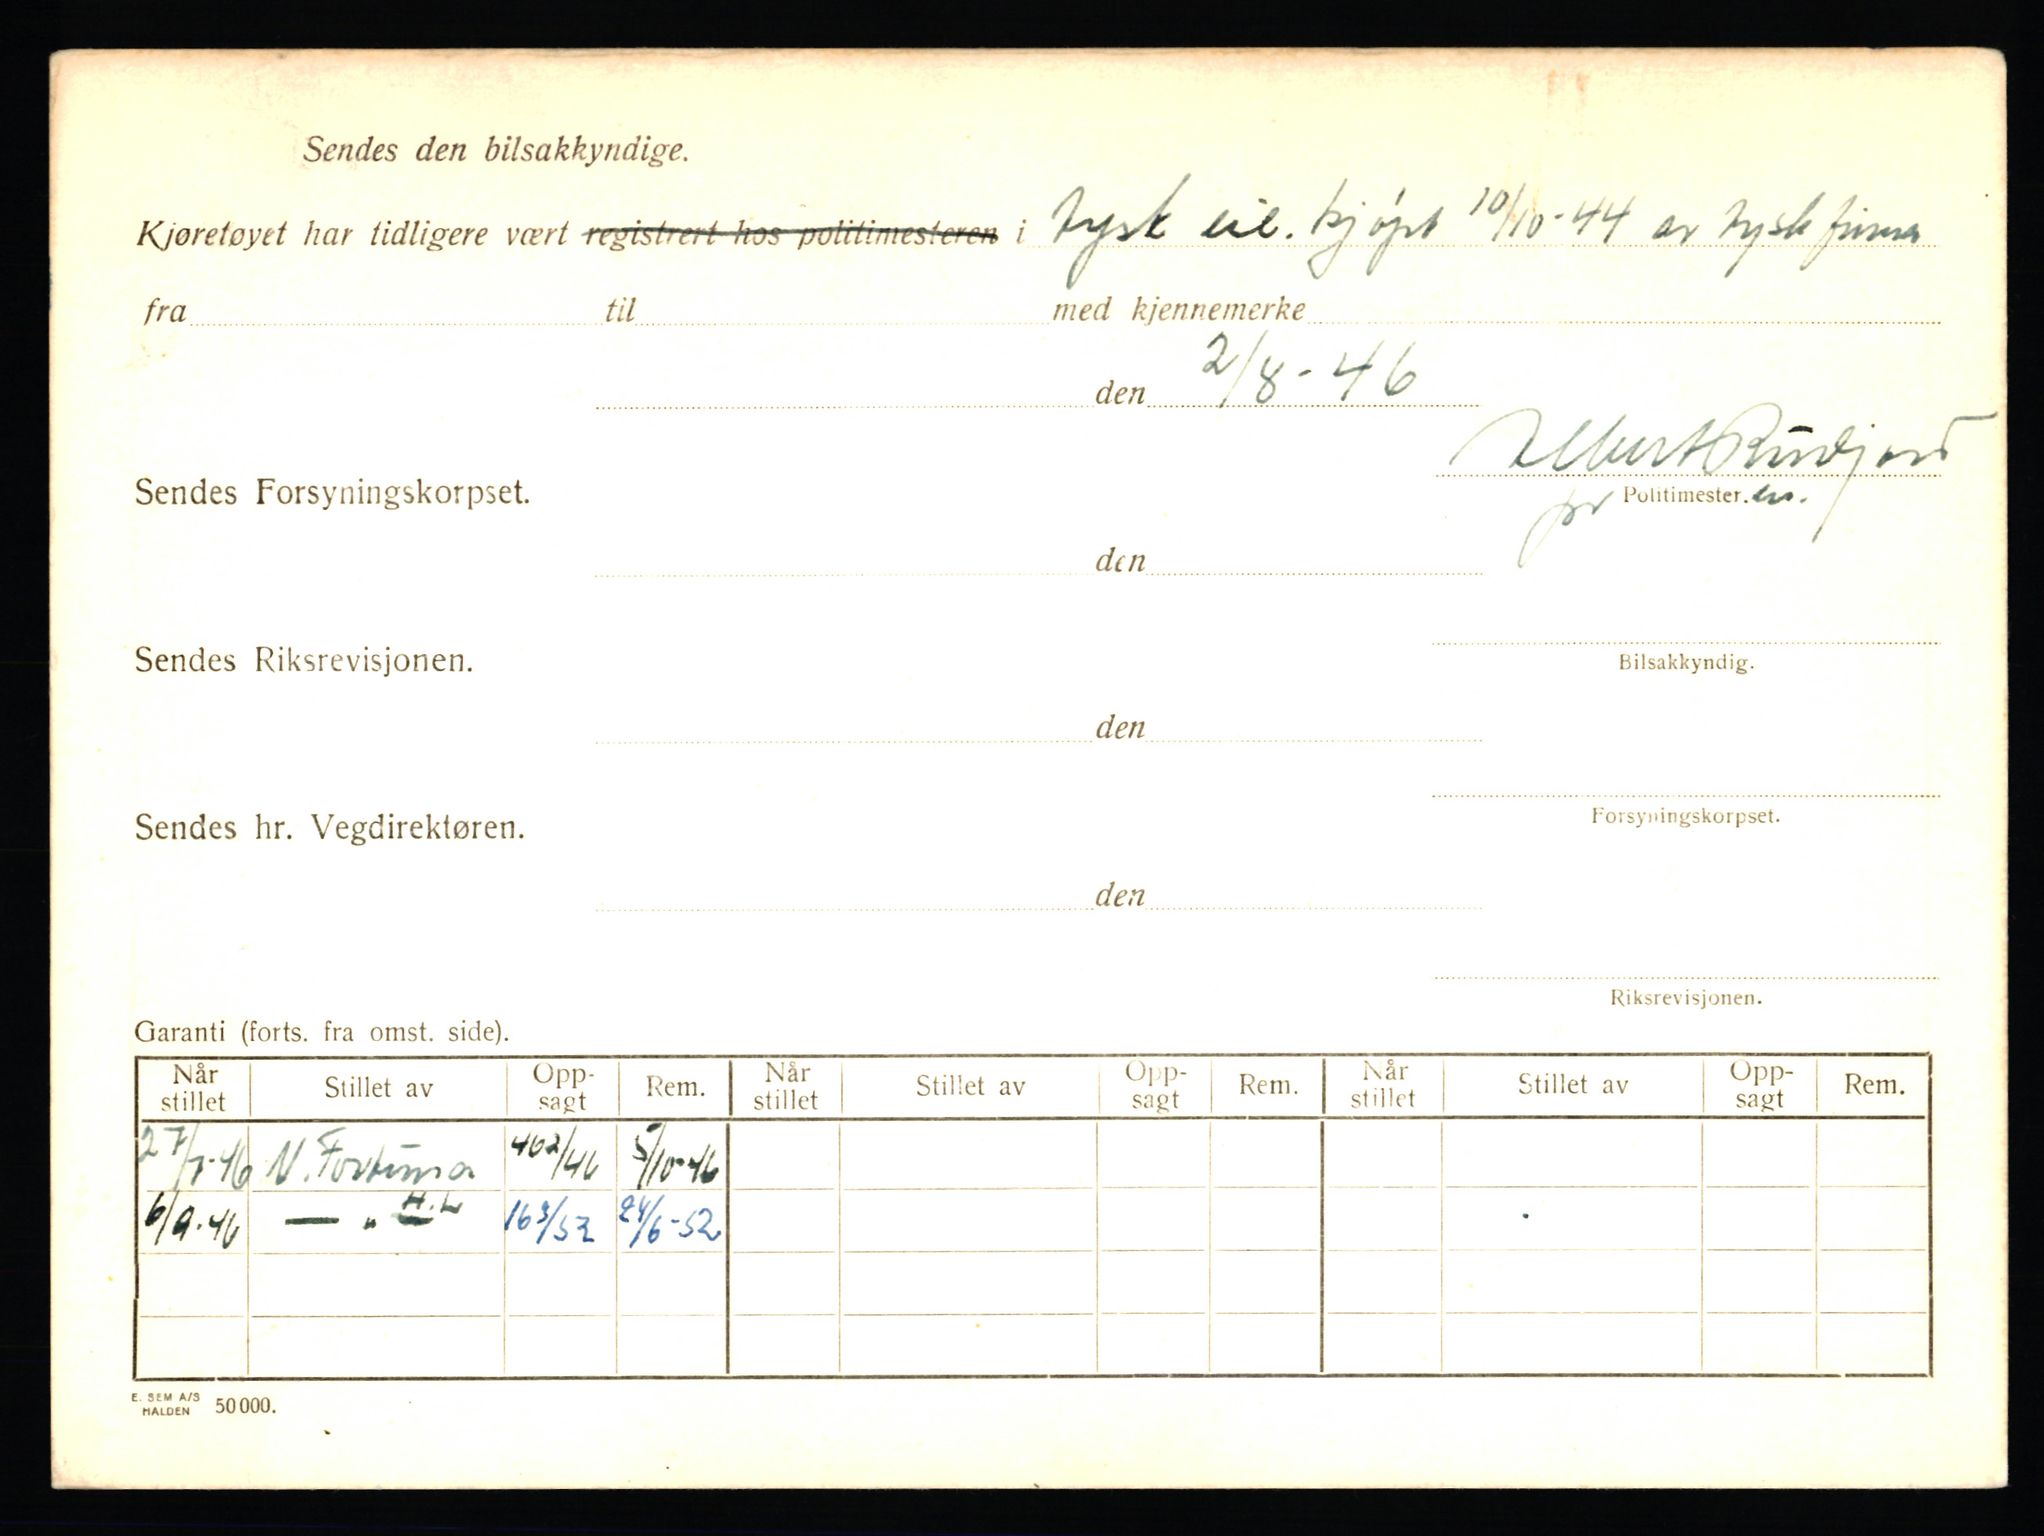 Sendes den bilsakkyndige.
Kjøretøyet har tidligere vært registrert hos politimesteren i tysk eie. kjøpt 10/10-44 av tysk firma
fra til med kjennemerke
den 2/8-46
Albert Rudjord
Sendes Forsyningskorpset.
pr Politimester.en.
den
Sendes Riksrevisjonen.
Bilsakkyndig.
den
Sendes hr. Vegdirektøren.
Forsyningskorpset.
den
Riksrevisjonen.
Garanti (forts. fra omst. side).
Når stillet Stillet av Opp-sagt Rem. Når stillet Stillet av Opp-sagt Rem. Når stillet Stillet av Opp-sagt Rem.
27/7-46 N. Fortuna 402/46 5/10-46
6/9-46 — " — H.L 163/52 24/6-52
E. SEM A/S
HALDEN 50 000.